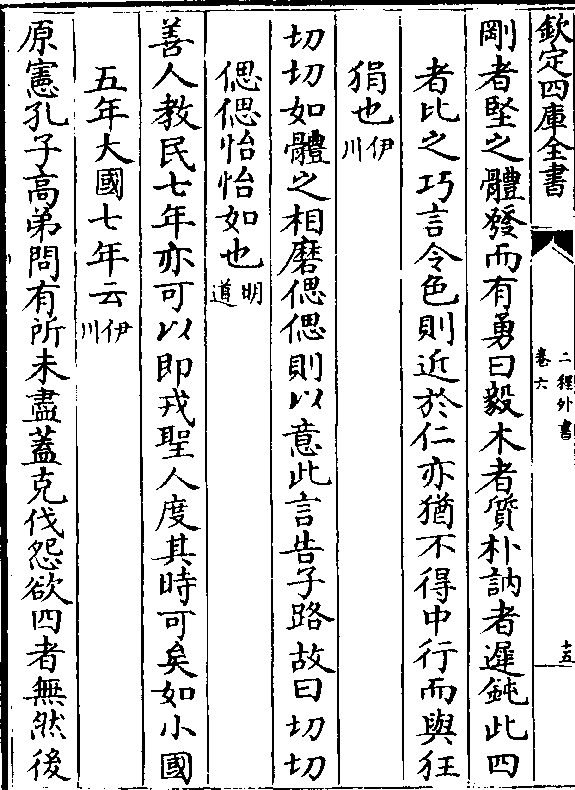 欽定四庫全書
二程外書
卷六
十五
剛者堅之體發而有勇曰毅木者質朴訥者遲鈍此四
者比之巧言令色則近於仁亦猶不得中行而與狂
狷也伊川
切切如體之相磨偲偲則以意此言告子路故曰切切
偲偲怡怡如也明道
善人教民七年亦可以即戎聖人度其時可矣如小國
五年大國七年云伊川
原憲孔子高弟問有所未盡蓋克伐怨欲四者無然後